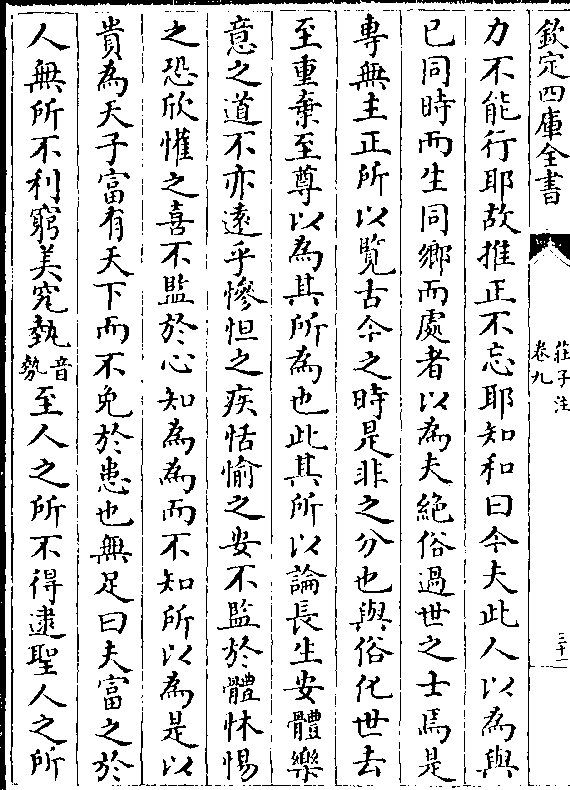 欽定四庫全書
莊子注
卷九
三十一
力不能行耶故推正不忘耶知和曰今夫此人以為與
已同時而生同鄉而處者以為夫絶俗過世之士焉是
専無主正所以覽古今之時是非之分也與俗化世去
至重棄至尊以為其所為也此其所以論長生安體樂
意之道不亦逺乎慘怛之疾恬愉之安不監於體怵惕
之恐欣懽之喜不監於心知為為而不知所以為是以
貴為天子富有天下而不免於患也無足曰夫富之於
人無所不利窮美究埶音勢至人之所不得逮聖人之所